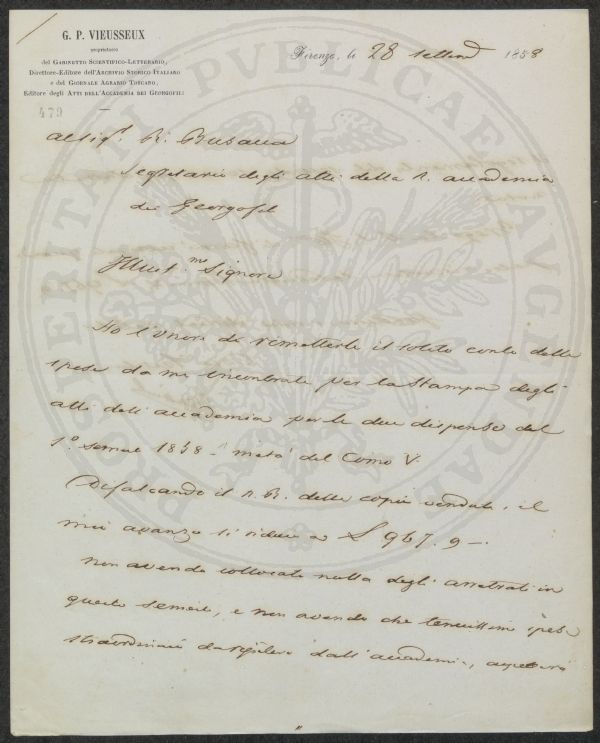 G. P. VIEUSSEUX
proprietario
del GABINETTO SCIENTIFICO-LETTERARIO,
Direttore-Editore dell'ARCHIVIO STORICO ITALIANO
e del GIORNALE AGRARIO TOSCANO,
Editore degli ATTI DELL'ACCADEMIA DEI GEORGOFILI
Firenze, li 28 settemb 1858
479
al Sigr. R. Busacca
Segretario degli atti della R. accademia
dei Georgofili
Illust.mo Signore
Ho l'onore di rimetterle il solito conto delle
spese da me incontrate per la stampa degli
atti dell'accademia per le due dispense del
1o semes 1858 - metà del Tomo V.
Difalcando il delle copie vendute, il
mio avanzo si riduce a £ 967. 9 -.
non avendo collocato nulla degli arretrati in
questo semest, e non avendo che tenuissime spese
straordinarie da dall'accademia, aspetterò
PROSPERITATI PVBLICAE AVGENDAE